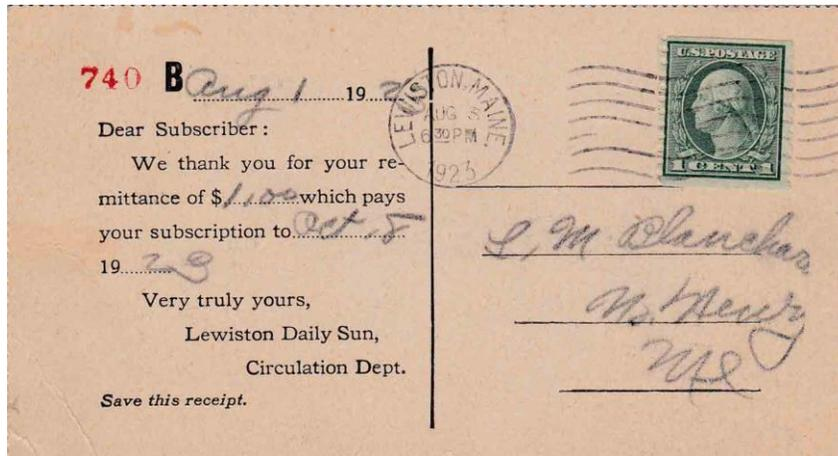 740 B Aug 1 192
Dear Subscriber:
We thank you for your re-
mittance of $1.00 which pays
your subscription to Oct 8
1923
Very truly yours,
Lewiston Daily Sun,
Circulation Dept.
Save this receipt.
LEWISTON, MAINE.
AUG
6 30 PM
1923
U.S. POSTAGE
1 CENT 1
L, M Blanchar
Me